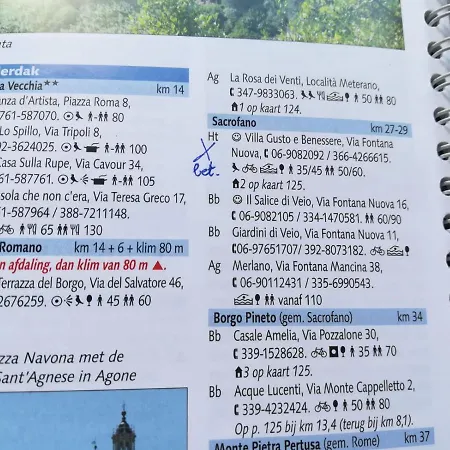 ta
erdak
a Vecchia** km 14
anza d'Artista, Piazza Roma 8,
761-587070. 80
Lo Spillo, Via Tripoli 8,
92-3624025. 65
Casa Sulla Rupe, Via Cavour 34,
761-587751. 105
sola che non c'era, Via Teresa Greco 17,
61-587964 / 388-7211148.
65 130
Romano km 14 + 6 + klim 80 m
n afdaling, dan klim van 80 m ▲.
Terrazza del Borgo, Via del Salvatore 46,
2676259. 45 60
zza Navona met de
Sant'Agnese in Agone
Ag La Rosa dei Venti, Località Meterano,
347-9833063. 50 80
1 op kaart 124.
Sacrofano km 27-29
Ht ☺ Villa Gusto e Benessere, Via Fontana
Nuova, 06-9082092 / 366-4266615.
X
bet.
35/45 50/60.
2 op kaart 125.
Bb ☺ Il Salice di Veio, Via Fontana Nuova 16,
06-9082105 / 334-1470581. 60/90
Bb Giardini di Veio, Via Fontana Nuova 11,
06-97651707/ 392-8073182.
Ag Merlano, Via Fontana Mancina 38,
06-90112431 / 335-6990543.
vanaf 110
Borgo Pineto (gem. Sacrofano) km 34
Bb Casale Amelia, Via Pozzalone 30,
339-1528628. 35 70
3 op kaart 125.
Bb Acque Lucenti, Via Monte Cappelletto 2,
339-4232424. 50 80
Op p. 125 bij km 13,4 (terug bij km 8,1).
Monte Pietra Pertusa (gem. Rome) km 37